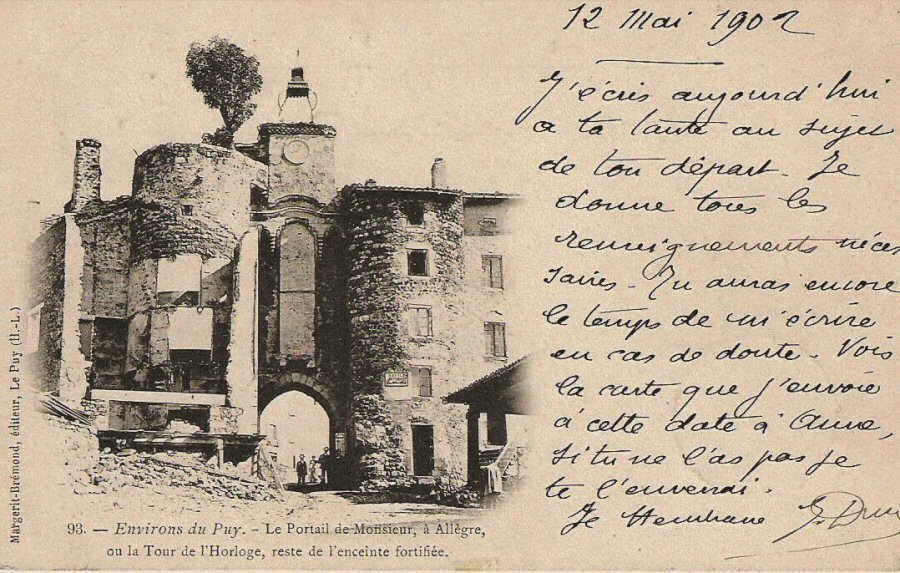 12 Mai 1902
J'écris aujourd'hui
a ta tante au sujet
de ton départ. Je
donne tous les
renseignements néces
saires - Tu auras encore
le temps de m'écrire
en cas de doute - Vois
la carte que j'envoie
à cette date à Anna,
si tu ne l'as pas je
te l'enverrai.
Je
93. — Environs du Puy. - Le Portail de Monsieur, à Allègre,
ou la Tour de l'Horloge, reste de l'enceinte fortifiée.
Margerit-Brémond, éditeur, Le Puy (H.-L.)